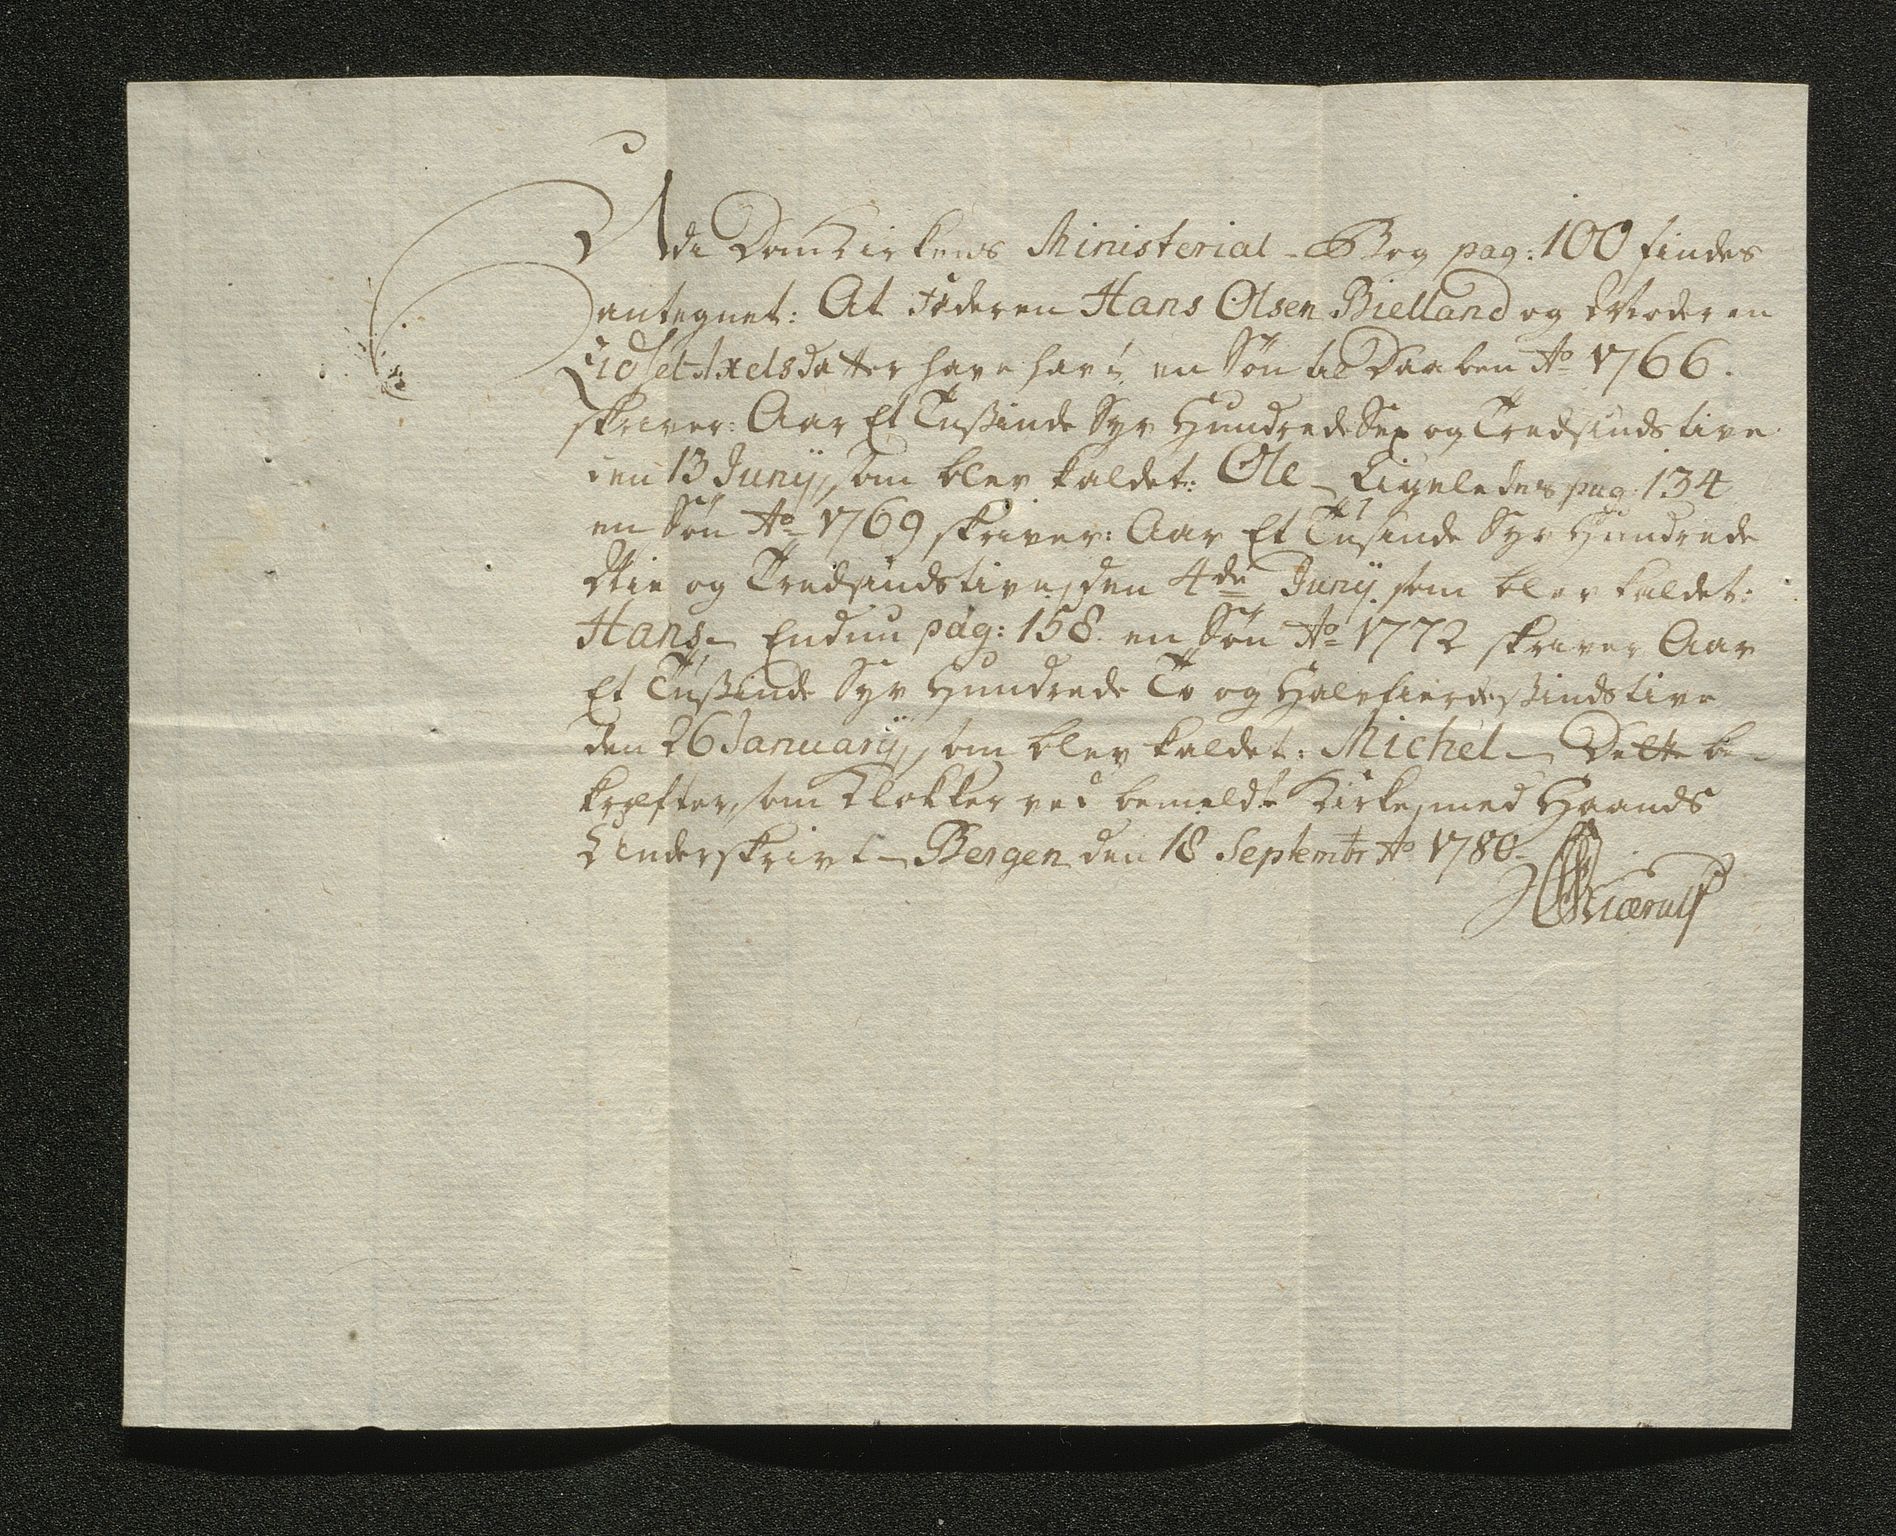 Udi DomKirkens Ministerial-Bog pag: 100 findes
antegnet: At Føderen Hans Olsen Bielland og Moderen
Lidset Axelsdatter have havt en Søn til Daaben Ao 1766.
skriver: Aar Et Tußinde Syv Hundrede Sex og Tredsindstive
den 13 Junij, som blev kaldet: Ole – Ligeledes pag: 134
en Søn Ao 1769 skriver: Aar Et Tusinde Syv Hundrede
Nie og Tredsindstive, den 4de Junij. som blev kaldet:
Hans – Endnu pag: 158. en Søn Ao 1772 skriver Aar
Et Tußinde Syv Hundrede To og Halvfierdeßindstive
den 26 Januarij, som blev kaldet: Michel – Dette be-
kræfter, som Klokker ved bemeldte Kirke, med Haands
Underskrivt – Bergen den 18 Septembr Ao 1780 –